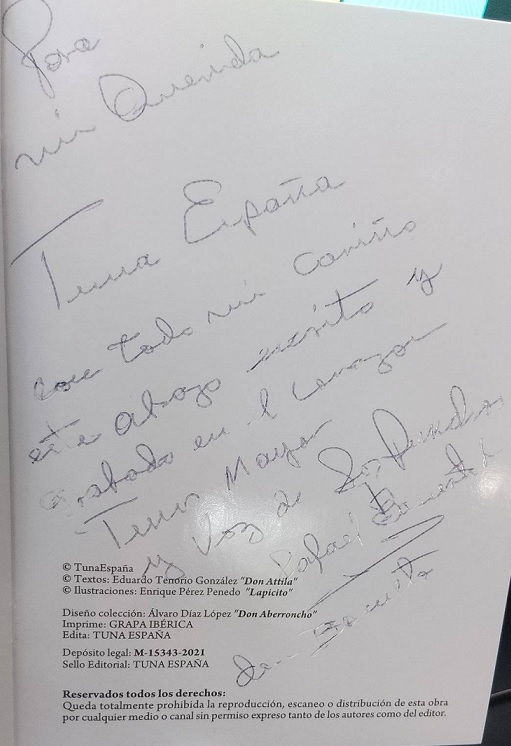 Para
mi Querida
Tuna España
con todo mi cariño
este abrazo escrito y
grabado en el corazon
Tuno Mayor
y Voz de Los Panchos
Rafael
© TunaEspaña
© Textos: Eduardo Tenorio González "Don Attila"
© Ilustraciones: Enrique Pérez Penedo "Lapicito"
Diseño colección: Álvaro Díaz López "Don Aberroncho"
Imprime: GRAPA IBÉRICA
Edita: TUNA ESPAÑA
Depósito legal: M-15343-2021
Sello Editorial: TUNA ESPAÑA
Reservados todos los derechos:
Queda totalmente prohibida la reproducción, escaneo o distribución de esta obra
por cualquier medio o canal sin permiso expreso tanto de los autores como del editor.